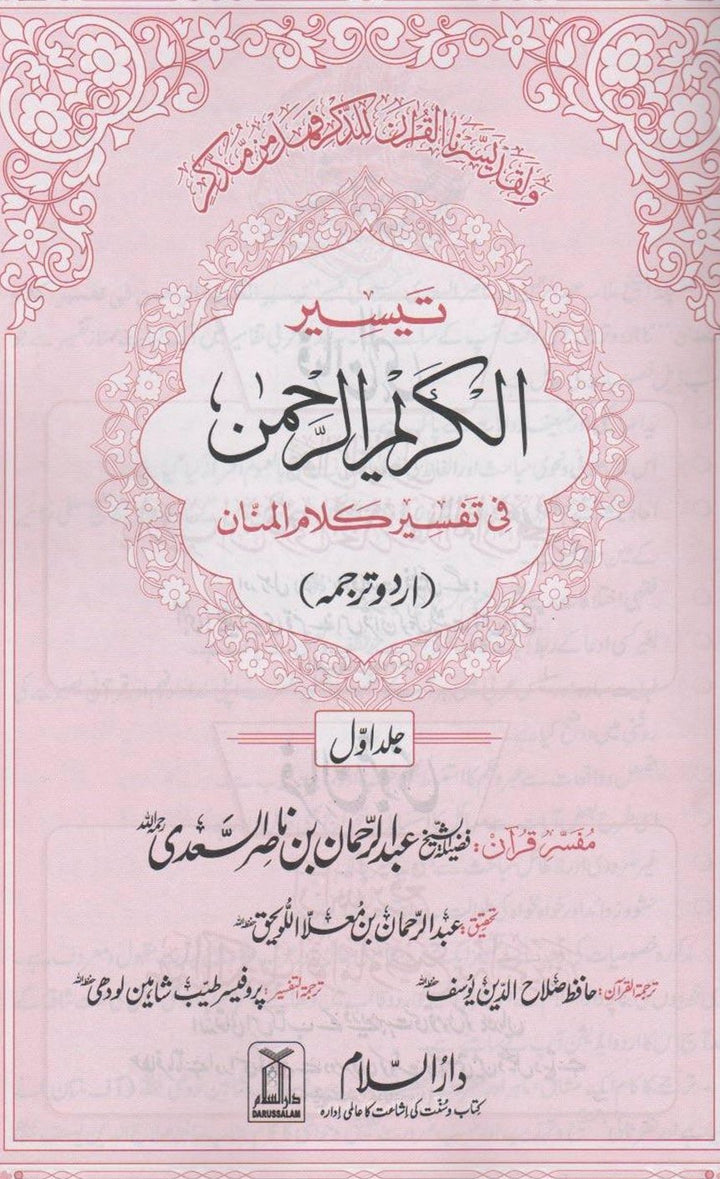 ولقد يسرنا القرآن للذكر فهل من مدكر
تيسير
الكريم الرحمٰن
فی تفسیر کلام المنّان
(اردو ترجمہ)
جلد اوّل
مفسّرِ قرآن: فضیلۃ الشیخ عبدالرّحمان بن ناصر السّعدی رحمہ اللہ
تحقیق: عبدالرّحمان بن مُعلّا اللویحق حفظہ اللہ
ترجمۃ القرآن: حافظ صلاح الدّین یُوسف حفظہ اللہ ترجمۃ التفسیر: پروفیسر طیّب شاہین لودھی حفظہ اللہ
دارُالسلام
کتاب و سُنّت کی اشاعت کا عالمی ادارہ
دارالسلام
DARUSSALAM